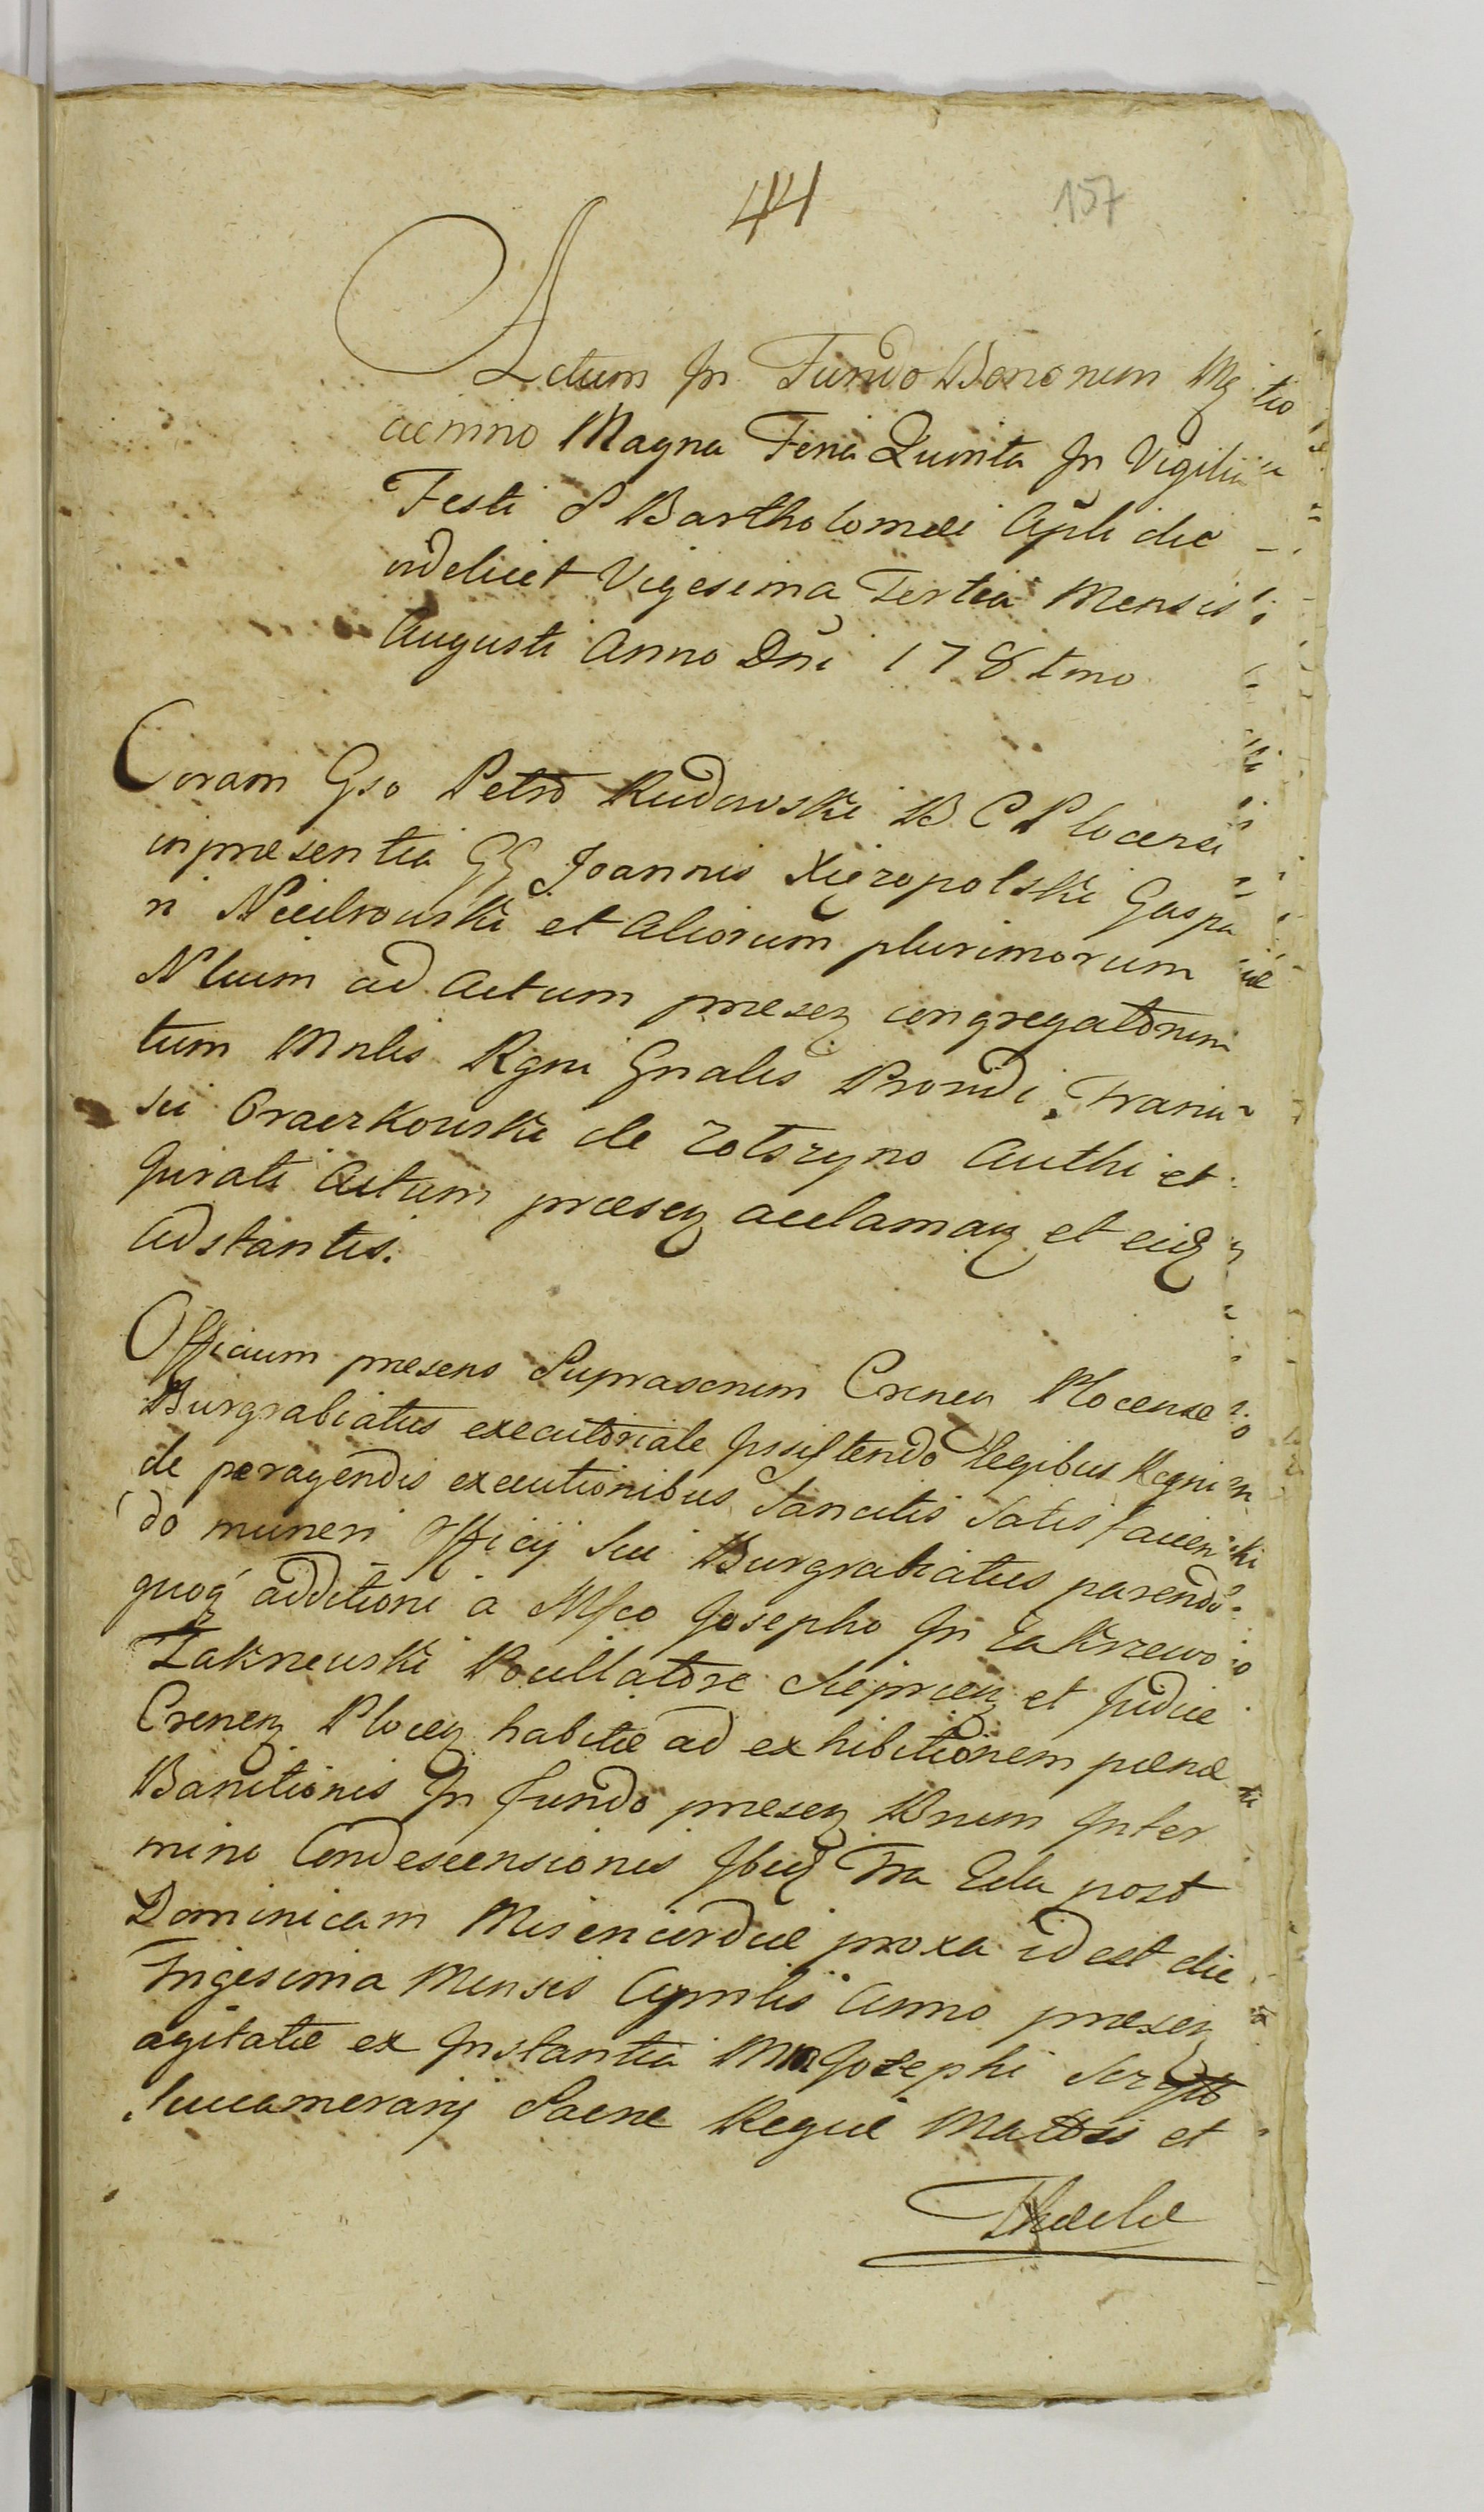 44 157
Actum In Fundo Bonorum
Magna Feria Quinta In Vigilia
Festi S Bartholomæi Apli die
videlicet Vigesima Tertia Mensis
Augusti Anno Dni 178
Coram Gso Petro Rudowski B C Plocensi
in præsentia GG Joannis Xięzopolski Gaspa
ri et Aliorum plurimorum
ad Actum præsen congregatorum
tum Mnlis Rgni Gnalis Providi Franci
sci de Authi et
Jurati Actum præsen acclaman et eidz
Adstantis.
Officium præsens Suprascrium Crense Plocense
Burgrabiatus executoriale Insistendo legibus Regni
de peragendis executionibus Sancitis Satisfacien
do muneri Officij Sui Burgrabiatus parendo
quoq additioni a Mfco Josepho In Zakrzewo
Zakrzewski Pocillatore et Judice
Crenen Plocen habitæ ad exhibitionem pænæ
Banitionis In fundo præsen Bnum Inter
mino Condescensionis Ibidz Fra 2da post
Dominicam Misericordiæ proxa id est die
Trigesima Mensis Aprilis Anno præsen
agitatæ ex Instantia Josephi
Succamerarij Sacræ Regiæ Mattis et
Theclæ